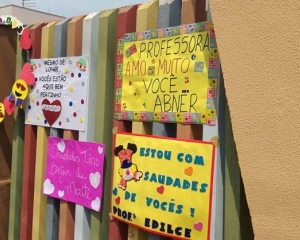 MESMO DE
LONGE
VOCÊS ESTÃO
AQUI BEM
PERTINHO
PROFESSORA
AMO MUITO
VOCÊ
ABNER
Saudades Tias
ESTOU COM
SAUDADES
DE VOCÊS!
PROFª EDILCE